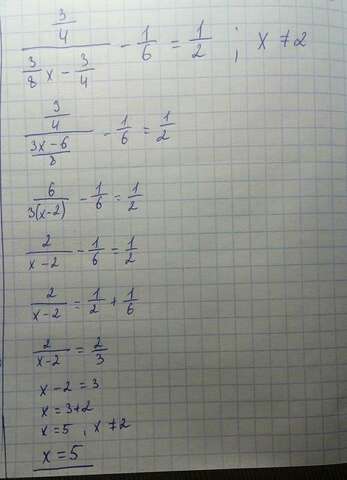 \frac{\frac{3}{4}}{\frac{3}{8}x - \frac{3}{4}} - \frac{1}{6} = \frac{1}{2} ; x ≠ 2
\frac{\frac{3}{4}}{\frac{3x-6}{8}} - \frac{1}{6} = \frac{1}{2}
\frac{6}{3(x-2)} - \frac{1}{6} = \frac{1}{2}
\frac{2}{x-2} - \frac{1}{6} = \frac{1}{2}
\frac{2}{x-2} = \frac{1}{2} + \frac{1}{6}
\frac{2}{x-2} = \frac{2}{3}
x - 2 = 3
x = 3+2
x = 5 , x ≠ 2
x = 5